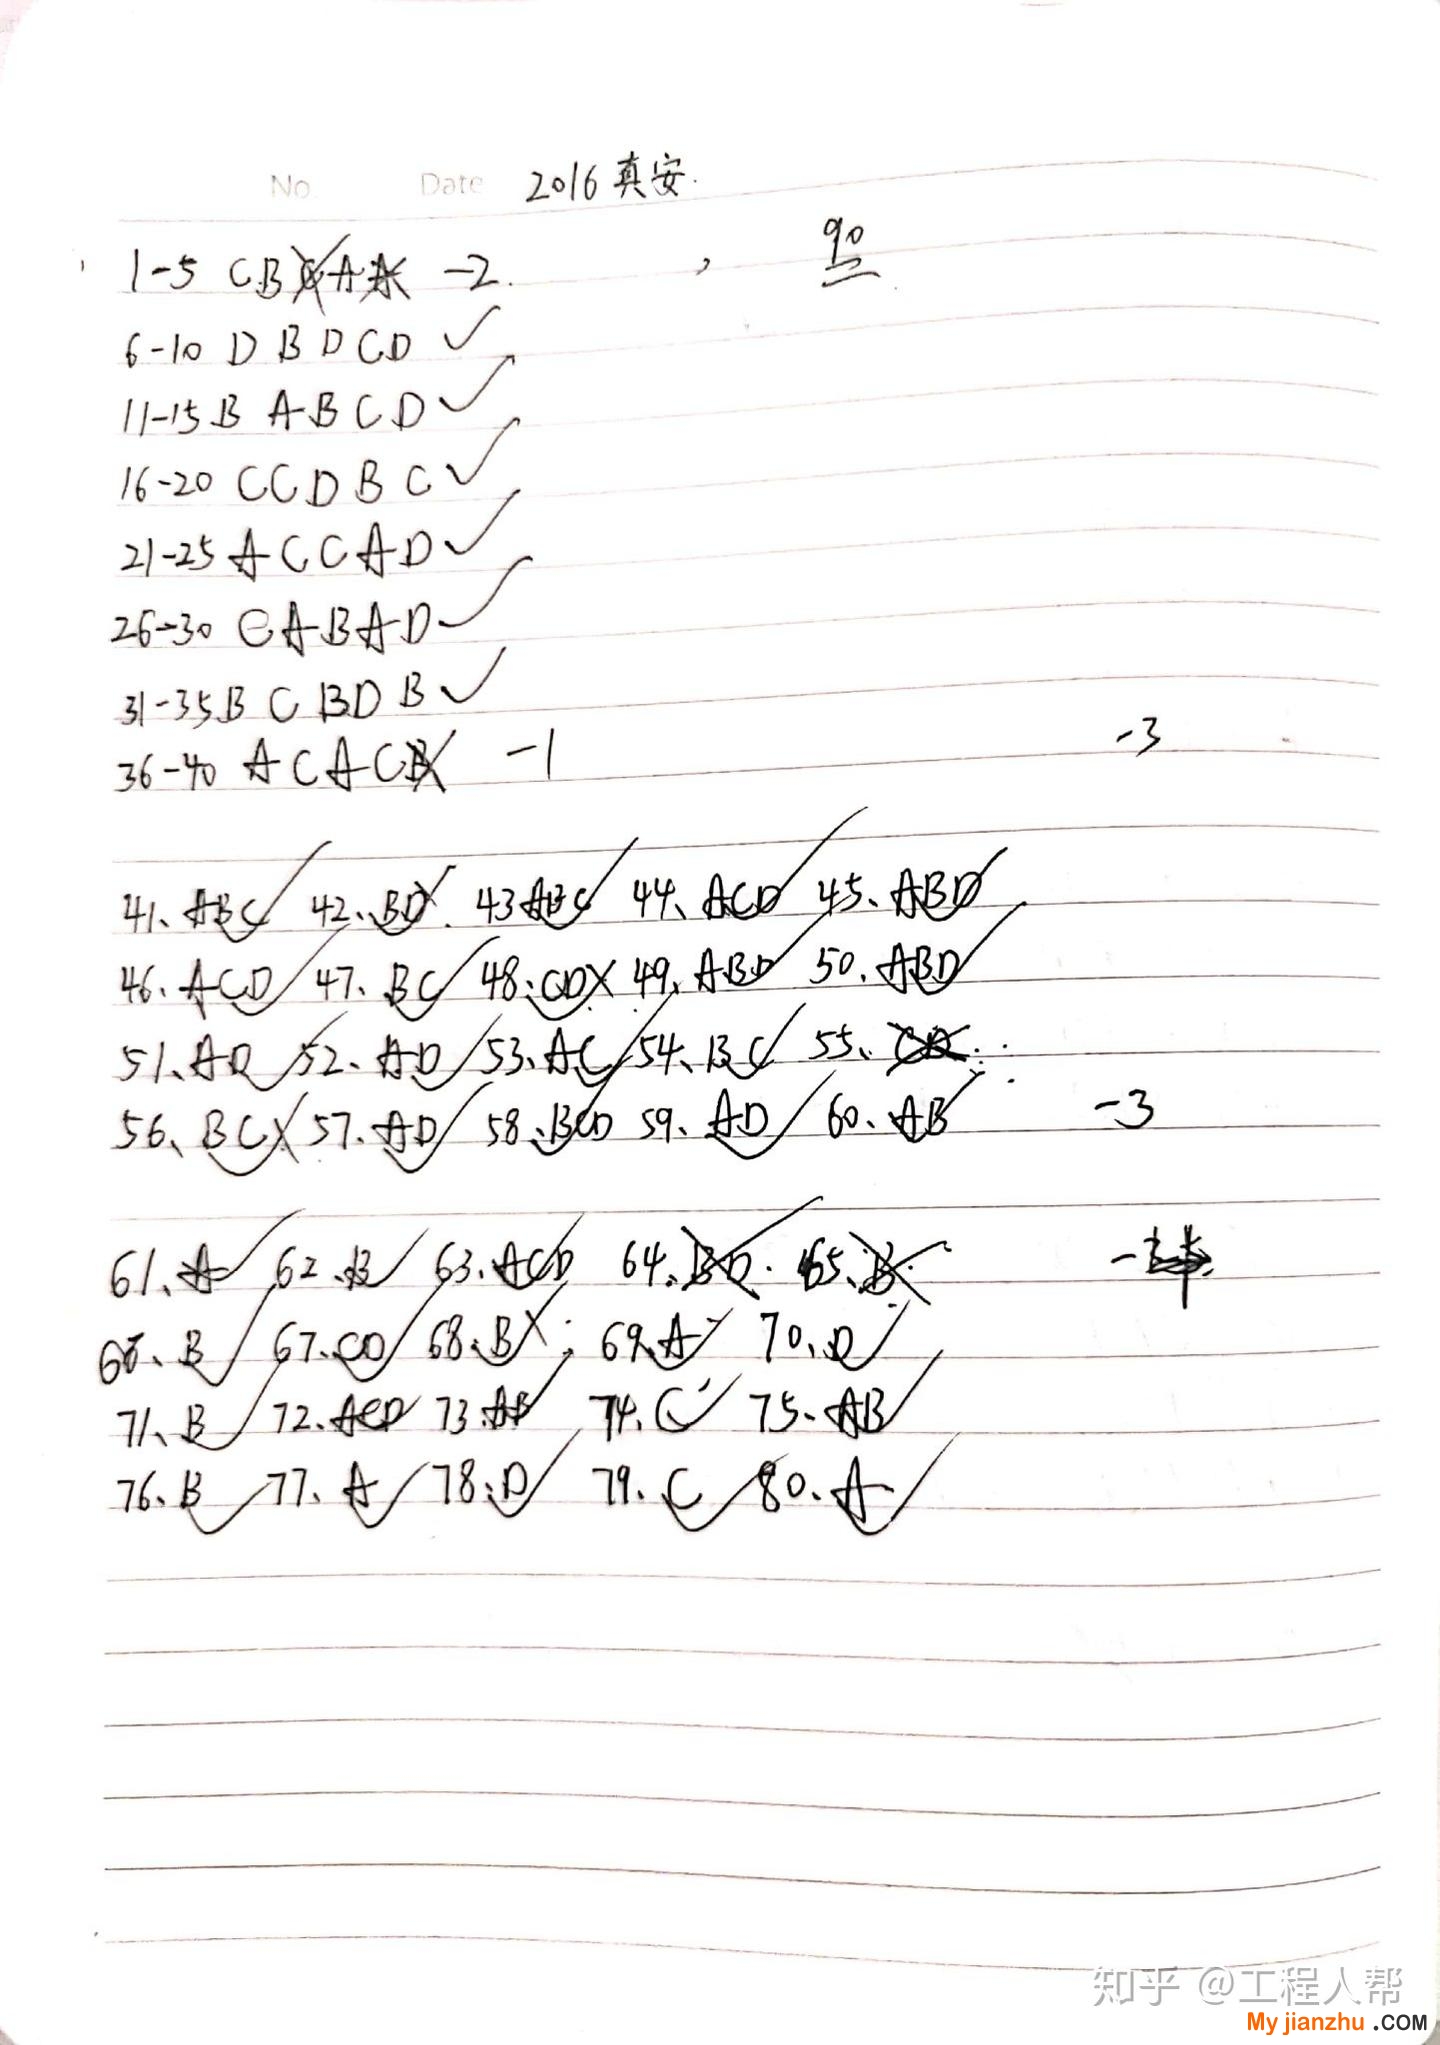 No. Date 2016真安.
90
1-5 CBCAA -2.
6-10 DBDCD
11-15 BABCD
16-20 CCDBC
21-25 ACCAD
26-30 CABAD
31-35 BCBDB
36-40 ACACB -1 -3
41、ABC 42、BD 43 ABC 44、ACD 45、ABD
46、ACD 47、BC 48、CD 49、ABD 50、ABD
51、AD 52、AD 53、AC 54、BC 55、
56、BC 57、AD 58、BCD 59、AD 60、AB -3
61、A 62、B 63、ACD 64、BD 65、B
66、B 67、CD 68、B 69、A 70、D
71、B 72、ACD 73、AB 74、C 75、AB
76、B 77、A 78、D 79、C 80、A
知乎 @工程人帮
Myjianzhu.COM